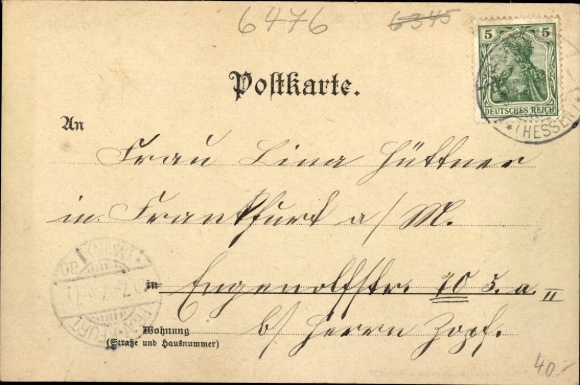 6476 6345
5 5
DEUTSCHES REICH
(HESSEN)
Postkarte.
An
Frau Lina Hüttner
in Frankfurt a/M.
in Eugenolfstr. 10 II
Wohnung
(Straße und Hausnummer)
b/ Herrn Zopf.
FRANKFURT
40.-